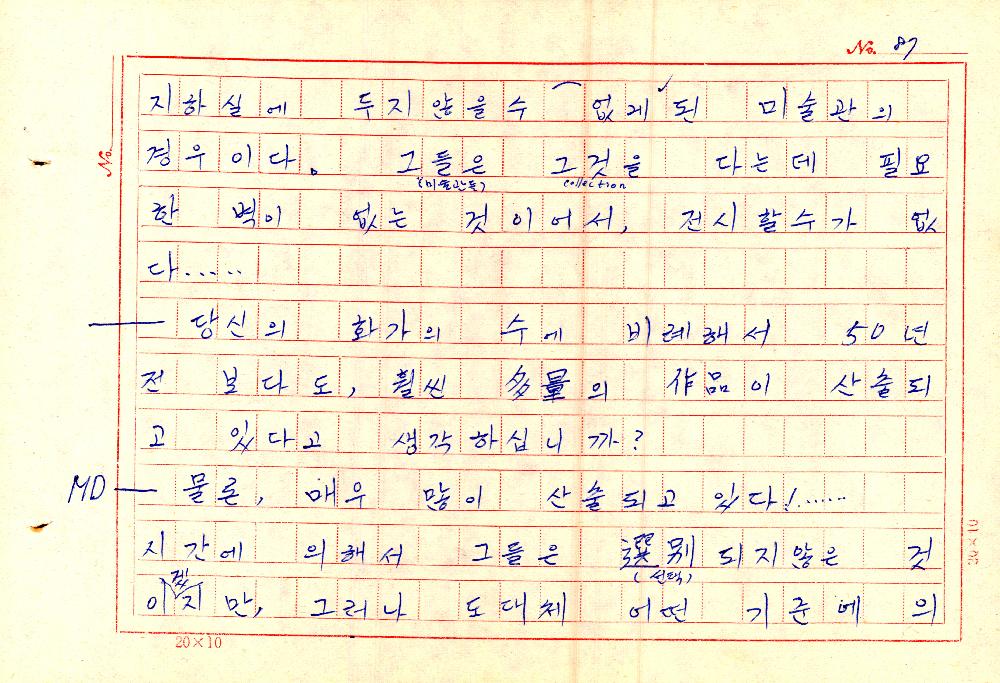 No. 87
No.
지하실에 두지않을수 없게된 미술관의
경우이다. 그들은 그것을 다는데 필요
(미술관들) collection
한 벽이 없는 것이어서, 전시할수가 없
다.....
— 당신의 화가의 수에 비례해서 50년
전 보다도, 훨씬 多量의 作品이 산출되
고 있다고 생각하십니까?
MD — 물론, 매우 많이 산출되고 있다!......
시간에 의해서 그들은 選別되지않은 것
(선택)
겠
이지만, 그러나 도대체 어떤 기준에 의
20×10
20×10